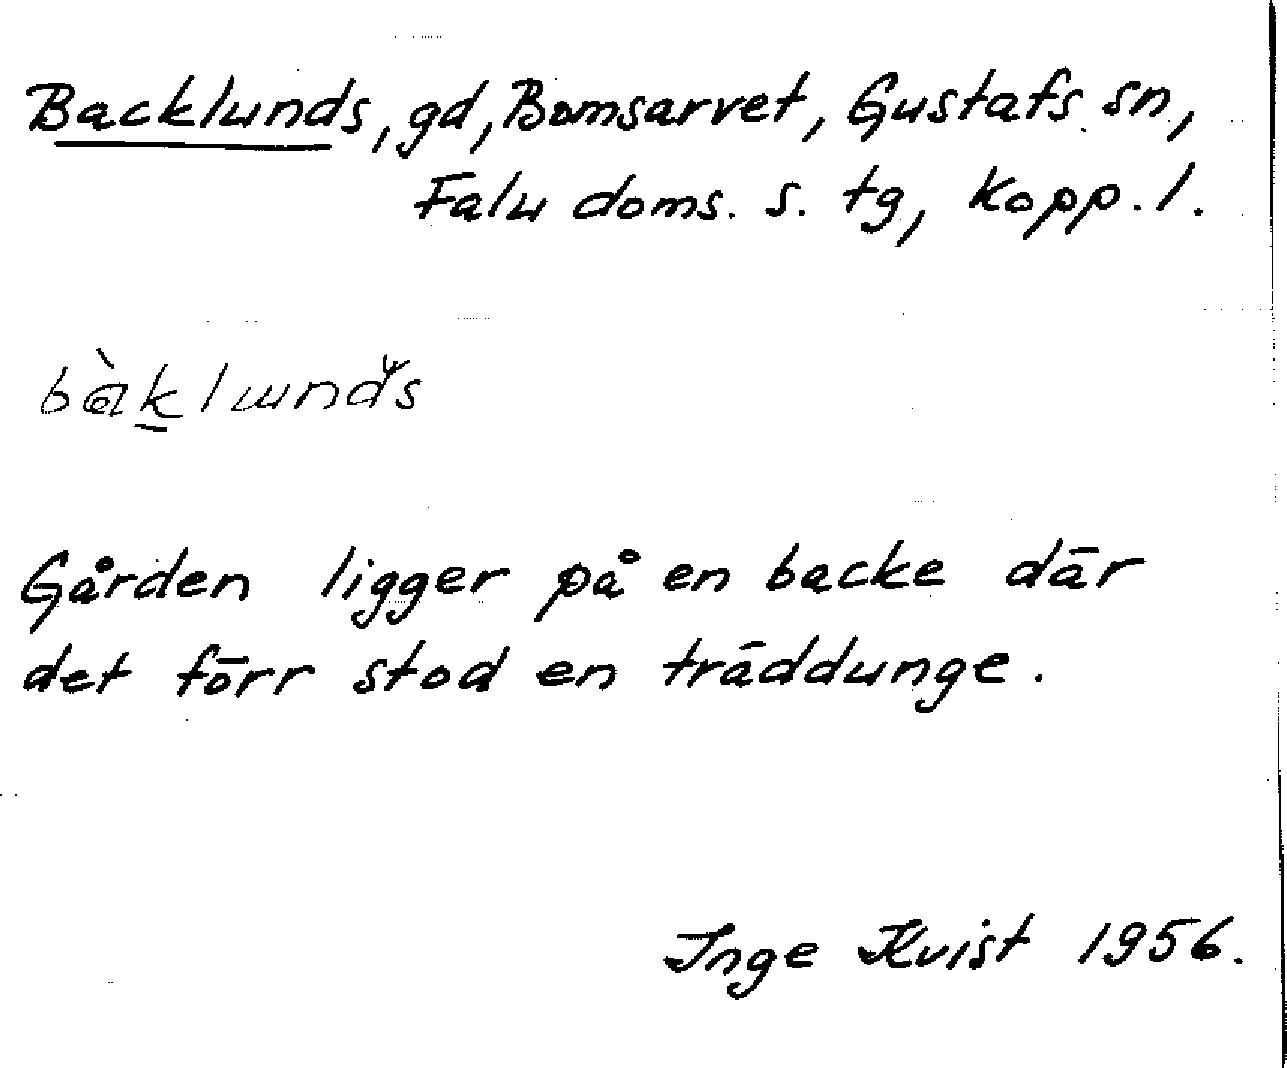 Backlunds, gd, Bomsarvet, Gustafs sn,
Falu doms. s. tg, Kopp. l.
bàklunds
Gården ligger på en backe där
det förr stod en träddunge.
Inge Kvist 1956.